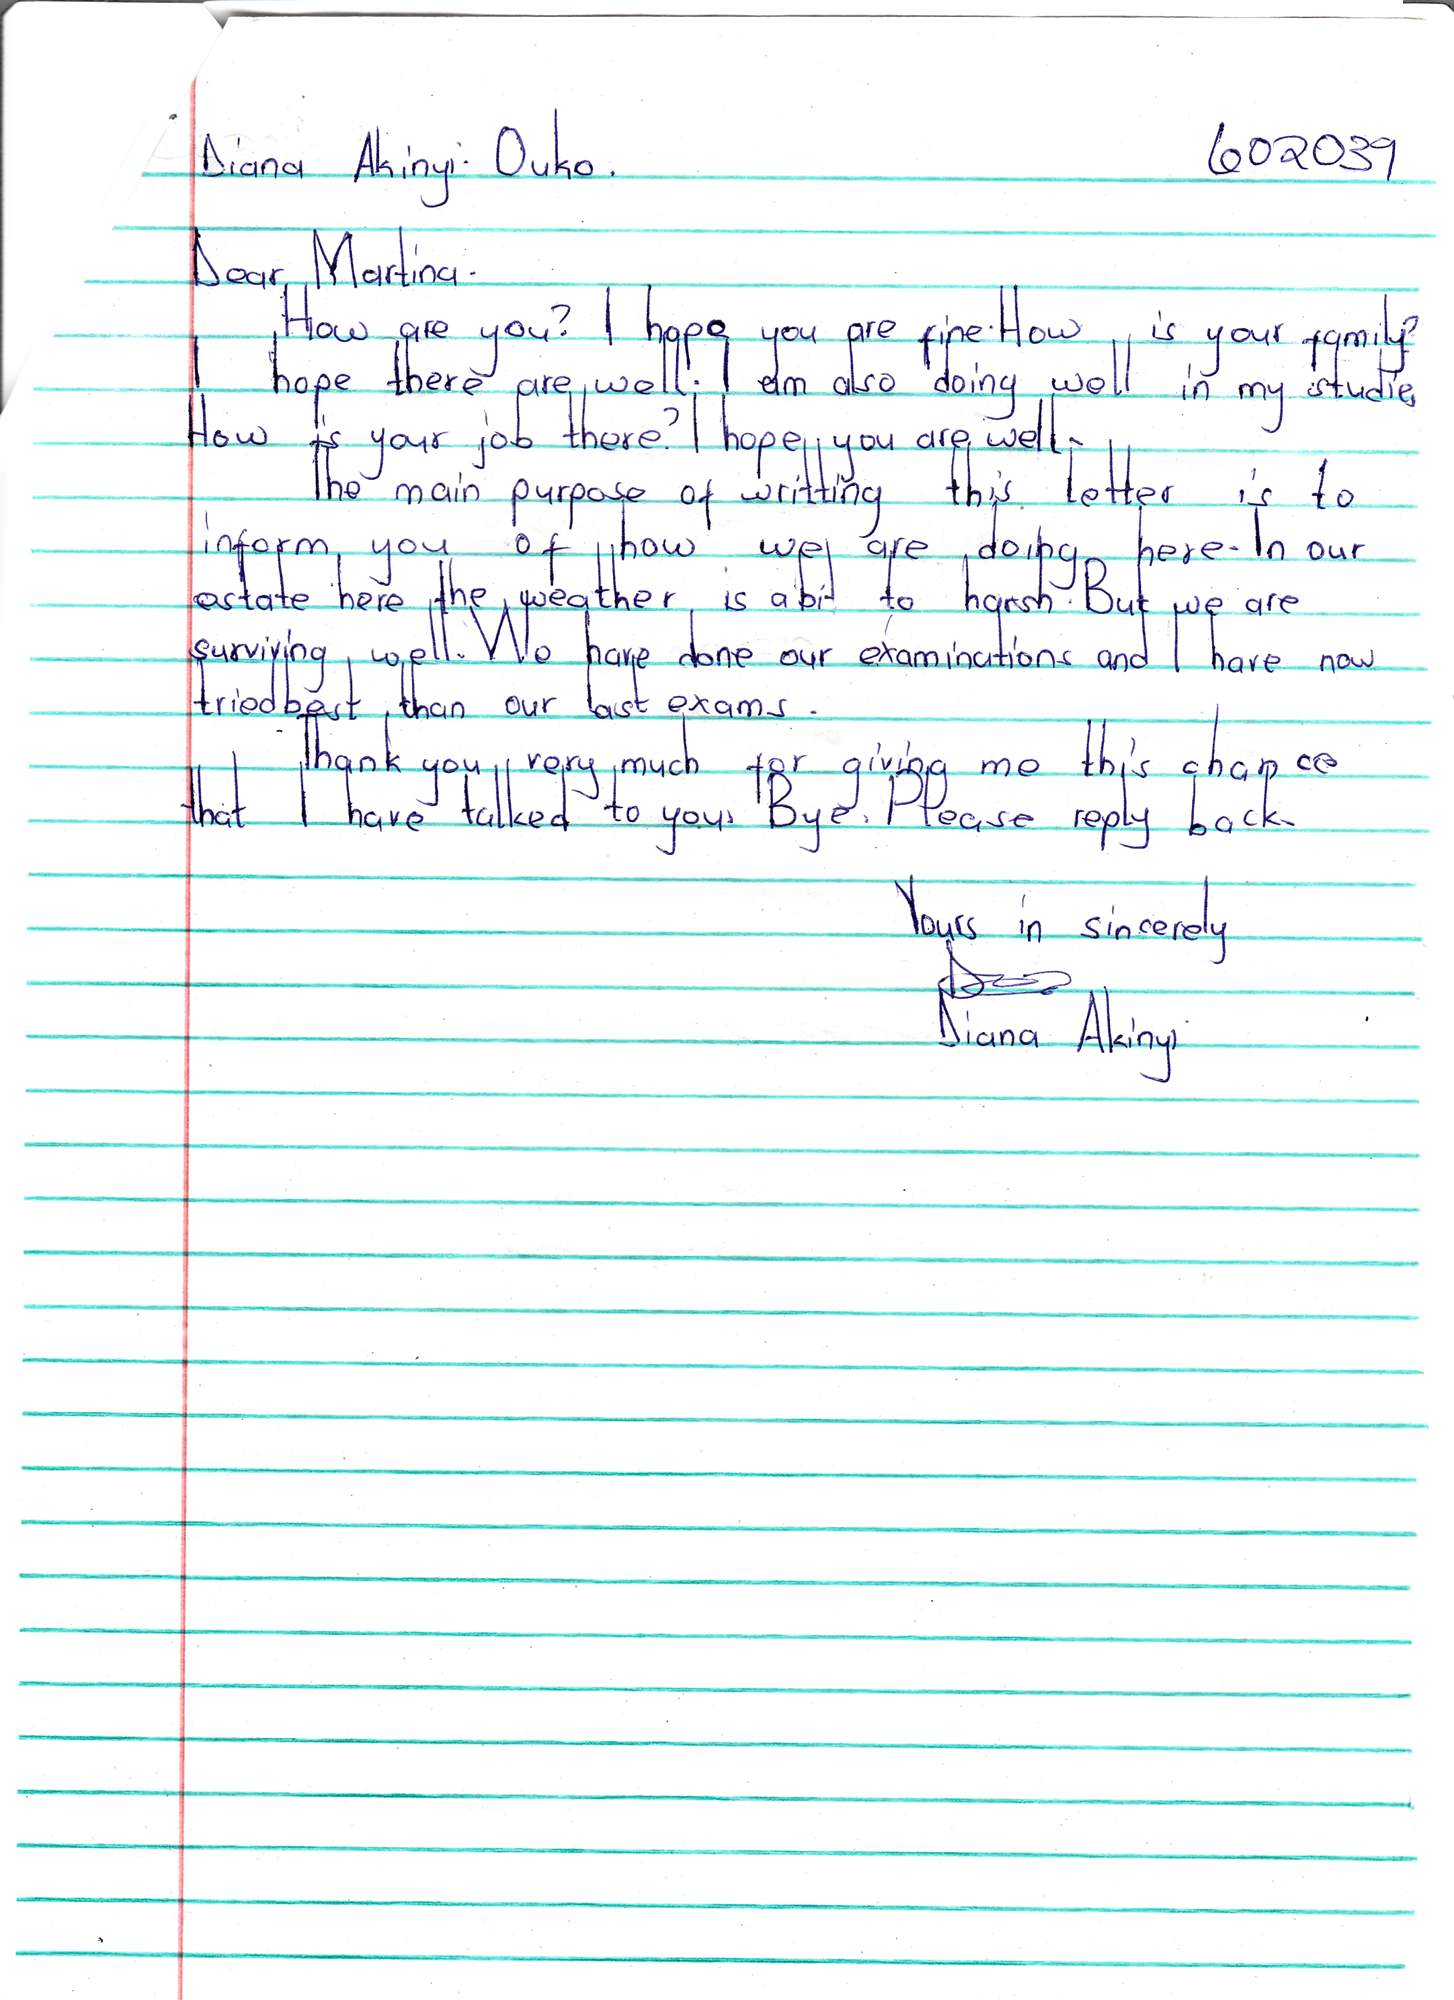 Diana Akinyi Ouko. 602039
Dear Martina.
How are you? I hope you are fine. How is your family?
I hope there are well. I am also doing well in my studie
How is your job there? I hope you are well.
The main purpose of writting this letter is to
inform you of how we are doing here. In our
estate here the weather is abit to harsh. But we are
surviving well. We have done our examinations and I have now
tried best than our last exams.
Thank you very much for giving me this chance
that I have talked to you. Bye. Please reply back.
Yours in sincerely
Diana Akinyi